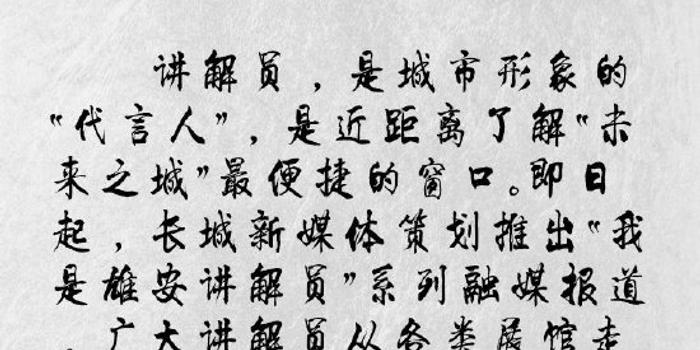 讲解员，是城市形象的
“代言人”，是近距离了解“未
来之城”最便捷的窗口。即日
起，长城新媒体策划推出“我
是雄安讲解员”系列融媒报道
，广大讲解员从各类展馆走